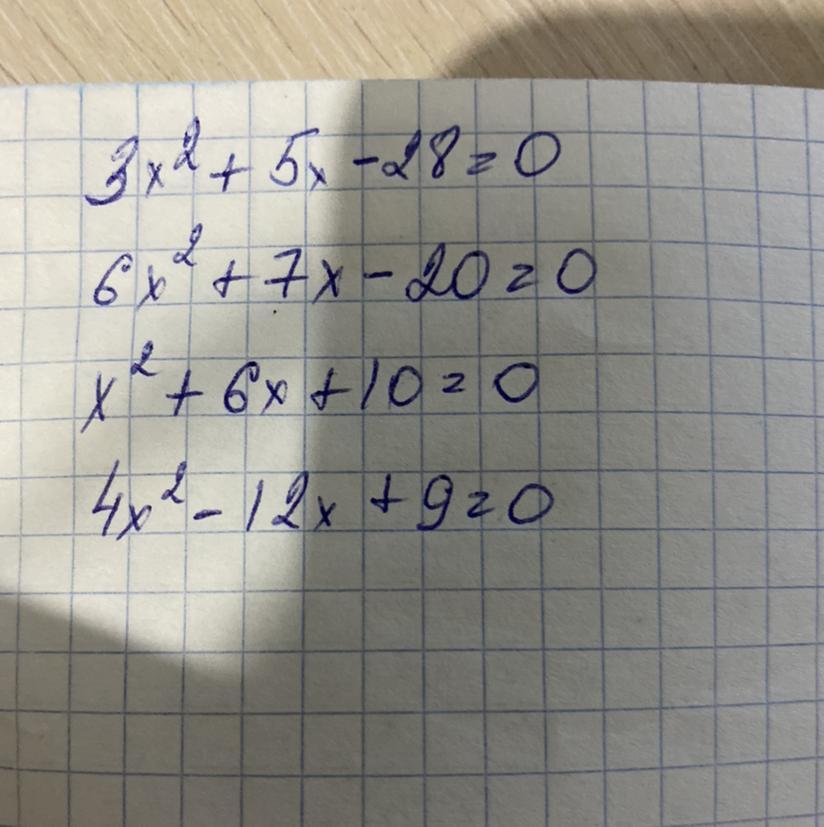 3x² + 5x - 28 = 0
6x² + 7x - 20 = 0
x² + 6x + 10 = 0
4x² - 12x + 9 = 0